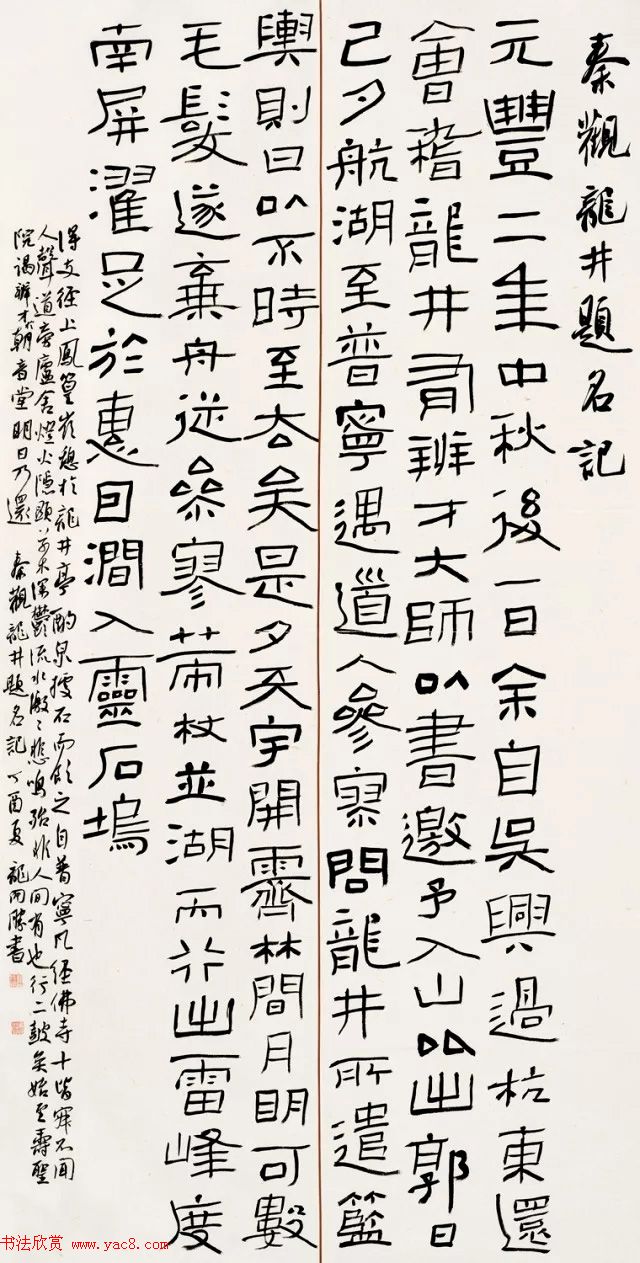 秦觀龍井題名記
元豐二年中秋後一日余自吳興過杭東還
會稽龍井有辨才大師以書邀予入山比出郭日
已夕航湖至普寧遇道人參寥問龍井所遣籃
輿則曰以不時至去矣是夕天宇開霽林間月明可數
毛髮遂棄舟從參寥策杖並湖而行出雷峰度
南屏濯足於惠因澗入靈石塢
得支徑上鳳篁嶺憩於龍井亭酌泉據石而飲之自普寧凡經佛寺十皆寂不聞
人聲道旁廬舍燈火隱顯草木深鬱流水激〻悲鳴殆非人間有也行二鼓矣始至壽聖
院謁辨才於朝音堂明日乃還 秦觀龍井題名記 丁酉夏 龍丙勝書
书法欣赏 www.yac8.com